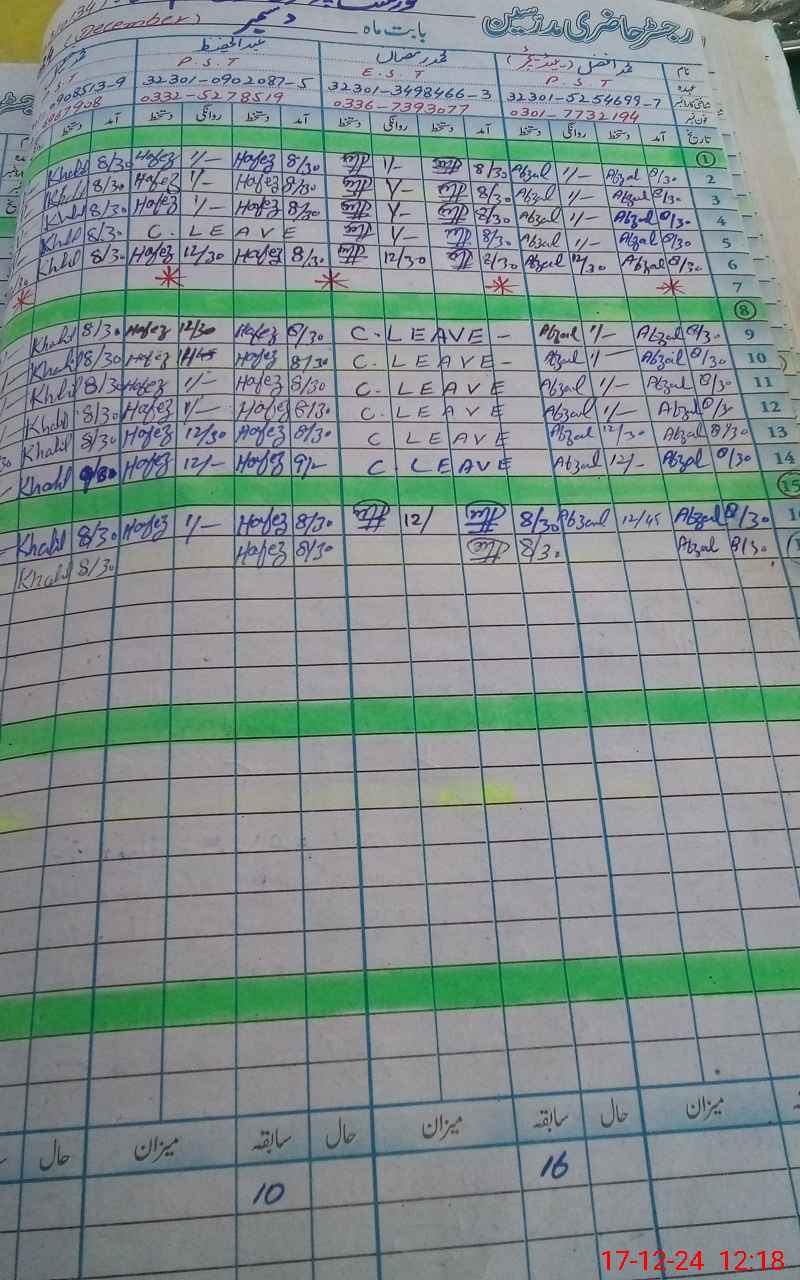 رجسٹر حاضری مدرسین بابت ماہ دسمبر (December)
نام محمد افضل محمد رمضان عبدالحفیظ
عہدہ P.S.T E.S.T P.S.T S.T
32301-5254699-7 32301-3498466-3 32301-0902087-5 0908513-9
فون نمبر 0301-7732194 0336-7393077 0332-5278519
تاریخ آمد دستخط روانگی دستخط آمد دستخط روانگی دستخط آمد دستخط روانگی دستخط آمد دستخط
1
2 8/30 Abzal 1/- Abzal 8/30 1/- Hafez 8/30 Hafez 1/- Hafez 8/30 Khalil
3 8/30 Abzal 1/- Abzal 8/30 1/- Hafez 8/30 Hafez 1/- Hafez 8/30 Khalil
4 8/30 Abzal 1/- Abzal 8/30 1/- Hafez 8/30 Hafez 1/- Hafez 8/30 Khalil
5 8/30 Abzal 1/- Abzal 8/30 1/- C. LEAVE 8/30 Khalil
6 8/30 Abzal 12/30 Abzal 8/30 12/30 8/30 Hafez 12/30 Hafez 8/30 Khalil
7
8
9 8/30 Abzal 1/- Abzal C. LEAVE - 8/30 Hafez 12/30 Hafez 8/30 Khalil
10 8/30 Abzal 1/- Abzal C. LEAVE - 8/30 Hafez Hafez 8/30 Khalil
11 8/30 Abzal 1/- Abzal C. LEAVE 8/30 Hafez 1/- Hafez 8/30 Khalil
12 8/30 Abzal 1/- Abzal C. LEAVE 8/30 Hafez 1/- Hafez 8/30 Khalil
13 8/30 Abzal 12/30 Abzal C. LEAVE 8/30 Hafez 12/30 Hafez 8/30 Khalil
14 8/30 Abzal 12/- Abzal C. LEAVE 9/- Hafez 12/- Hafez Khalil
15
16 8/30 Abzal 12/45 Abzal 8/30 12/ 8/30 Hafez 1/- Hafez 8/30 Khalil
8/30 Abzal 8/30 8/30 Hafez 8/30 Khalil
میزان حال سابقہ میزان حال سابقہ میزان حال
16 10
17-12-24 12:18